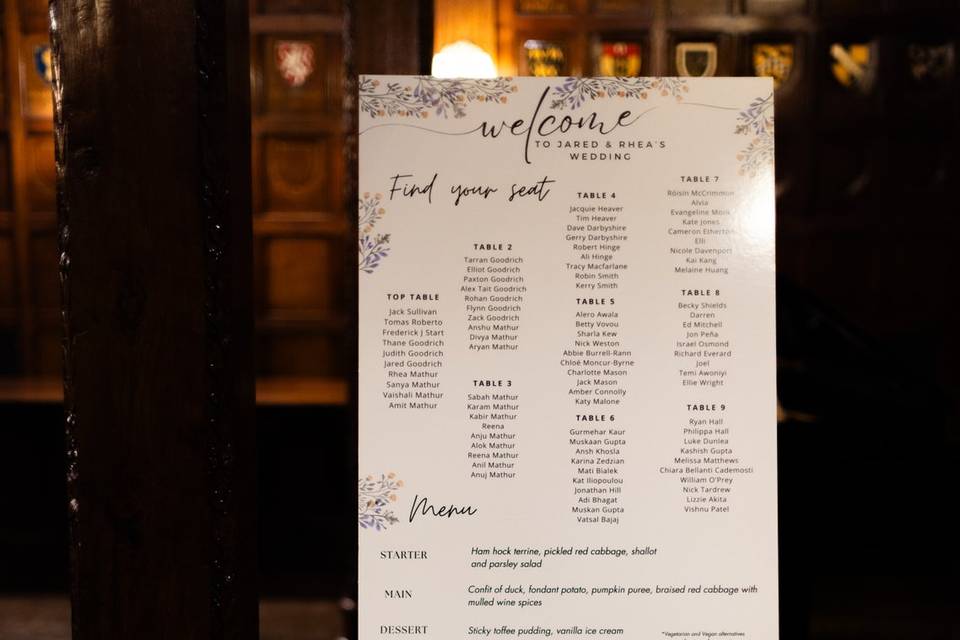 welcome
TO JARED & RHEA'S
WEDDING
Find your seat
TOP TABLE
Jack Sullivan
Tomas Roberto
Frederick J Start
Thane Goodrich
Judith Goodrich
Jared Goodrich
Rhea Mathur
Sanya Mathur
Vaishali Mathur
Amit Mathur
TABLE 2
Tarran Goodrich
Elliot Goodrich
Paxton Goodrich
Alex Tait Goodrich
Rohan Goodrich
Flynn Goodrich
Zack Goodrich
Anshu Mathur
Divya Mathur
Aryan Mathur
TABLE 3
Sabah Mathur
Karam Mathur
Kabir Mathur
Reena
Anju Mathur
Alok Mathur
Reena Mathur
Anil Mathur
Anuj Mathur
TABLE 4
Jacquie Heaver
Tim Heaver
Dave Darbyshire
Gerry Darbyshire
Robert Hinge
Ali Hinge
Tracy Macfarlane
Robin Smith
Kerry Smith
TABLE 5
Alero Awala
Betty Vovou
Sharla Kew
Nick Weston
Abbie Burrell-Rann
Chloé Moncur-Byrne
Charlotte Mason
Jack Mason
Amber Connolly
Katy Malone
TABLE 6
Gurmehar Kaur
Muskaan Gupta
Ansh Khosla
Karina Zedzian
Mati Bialek
Kat Iliopoulou
Jonathan Hill
Adi Bhagat
Muskan Gupta
Vatsal Bajaj
TABLE 7
Róisín McCrimmon
Alvia
Evangeline Monk
Kate Jones
Cameron Etherton
Elli
Nicole Davenport
Kai Kang
Melaine Huang
TABLE 8
Becky Shields
Darren
Ed Mitchell
Jon Peña
Israel Osmond
Richard Everard
Joel
Temi Awoniyi
Ellie Wright
TABLE 9
Ryan Hall
Philippa Hall
Luke Dunlea
Kashish Gupta
Melissa Matthews
Chiara Bellanti Cademosti
William O'Prey
Nick Tardrew
Lizzie Akita
Vishnu Patel
Menu
STARTER
Ham hock terrine, pickled red cabbage, shallot
and parsley salad
MAIN
Confit of duck, fondant potato, pumpkin puree, braised red cabbage with
mulled wine spices
DESSERT
Sticky toffee pudding, vanilla ice cream
*Vegetarian and Vegan alternatives